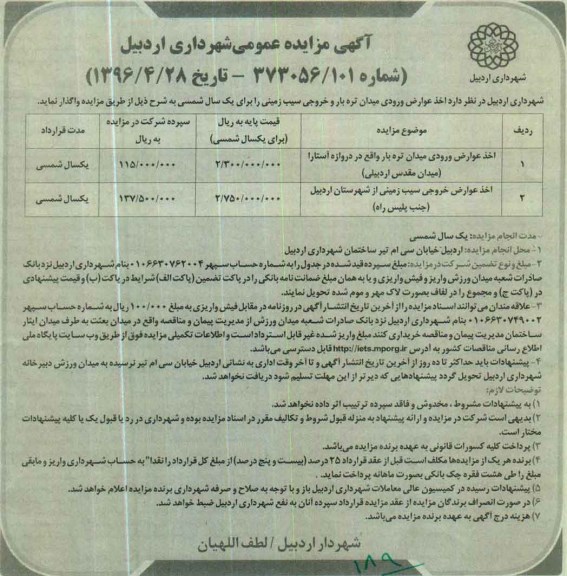 آگهی مزایده عمومی شهرداری اردبیل
(شماره ۳۷۳۰۵۶/۱۰۱ - تاریخ ۱۳۹۶/۴/۲۸)
شهرداری اردبیل
شهرداری اردبیل در نظر دارد اخذ عوارض ورودی میدان تره بار و خروجی سیب زمینی را برای یک سال شمسی به شرح ذیل از طریق مزایده واگذار نماید.
ردیف موضوع مزایده قیمت پایه به ریال (برای یکسال شمسی) سپرده شرکت در مزایده به ریال مدت قرارداد
۱ اخذ عوارض ورودی میدان تره بار واقع در دروازه آستارا (میدان مقدس اردبیلی) ۲/۳۰۰/۰۰۰/۰۰۰ ۱۱۵/۰۰۰/۰۰۰ یکسال شمسی
۲ اخذ عوارض خروجی سیب زمینی از شهرستان اردبیل (جنب پلیس راه) ۲/۷۵۰/۰۰۰/۰۰۰ ۱۳۷/۵۰۰/۰۰۰ یکسال شمسی
- مدت انجام مزایده: یک سال شمسی
۱ - محل انجام مزایده: اردبیل خیابان سی ام تیر ساختمان شهرداری اردبیل
۲ - مبلغ و نوع تضمین شرکت در مزایده: مبلغ سپرده قید شده در جدول را به شماره حساب سپهر ۰۱۰۶۶۳۰۷۶۲۰۰۴ بنام شهرداری اردبیل نزد بانک
صادرات شعبه میدان ورزش واریز و فیش واریزی و یا به همان مبلغ ضمانت نامه بانکی را در پاکت تضمین (پاکت الف) شرایط در پاکت (ب) و قیمت پیشنهادی
در (پاکت ج) و مجموع را در لفاف بصورت لاک مهر و موم شده تحویل نمایند.
۳ - علاقه مندان می توانند اسناد مزایده را از آخرین تاریخ انتشار آگهی در روزنامه در مقابل فیش واریزی به مبلغ ۱۰۰/۰۰۰ ریال به شماره حساب سپهر
۰۱۰۶۶۳۰۷۴۹۰۰۲ بنام شهرداری اردبیل نزد بانک صادرات شعبه میدان ورزش از مدیریت پیمان و مناقصه واقع در میدان بعثت به طرف میدان ایثار
ساختمان مدیریت پیمان و مناقصه خریداری کنند مبلغ واریز شده غیر قابل استرداد است و اطلاعات تکمیلی مزایده فوق از طریق وب سایت پایگاه ملی
اطلاع رسانی مناقصات کشور به آدرس http://iets.mporg.ir قابل دسترسی می باشد.
۴ - پیشنهادات باید حداکثر تا ده روز از آخرین تاریخ انتشار آگهی و تا آخر وقت اداری به نشانی اردبیل خیابان سی ام تیر نرسیده به میدان ورزش دبیرخانه
شهرداری اردبیل تحویل گردد پیشنهادهایی که دیرتر از این مهلت تسلیم شود دریافت نخواهد شد.
توضیحات لازم:
۱) به پیشنهادات مشروط، مخدوش و فاقد سپرده ترتیب اثر داده نخواهد شد.
۲) بدیهی است شرکت در مزایده و ارائه پیشنهاد به منزله قبول شروط و تکالیف مقرر در اسناد مزایده بوده و شهرداری در رد یا قبول یک یا کلیه پیشنهادات
مختار است.
۳) پرداخت کلیه کسورات قانونی به عهده برنده مزایده می باشد.
۴) برنده هر یک از مزایده ها مکلف است قبل از عقد قرارداد ۲۵ درصد (بیست و پنج درصد) از مبلغ کل قرارداد را نقدا" به حساب شهرداری واریز و مابقی
مبلغ را طی هشت فقره چک بانکی بصورت ماهانه پرداخت نماید.
۵) پیشنهادات رسیده در کمیسیون عالی معاملات شهرداری اردبیل باز و با توجه به صلاح و صرفه شهرداری برنده مزایده اعلام خواهد شد.
۶) در صورت انصراف برندگان مزایده از عقد مزایده قرارداد سپرده آنان به نفع شهرداری اردبیل ضبط خواهد شد.
۷) هزینه درج آگهی به عهده برنده مزایده می باشد.
شهردار اردبیل / لطف اللهیان
۱۸۹